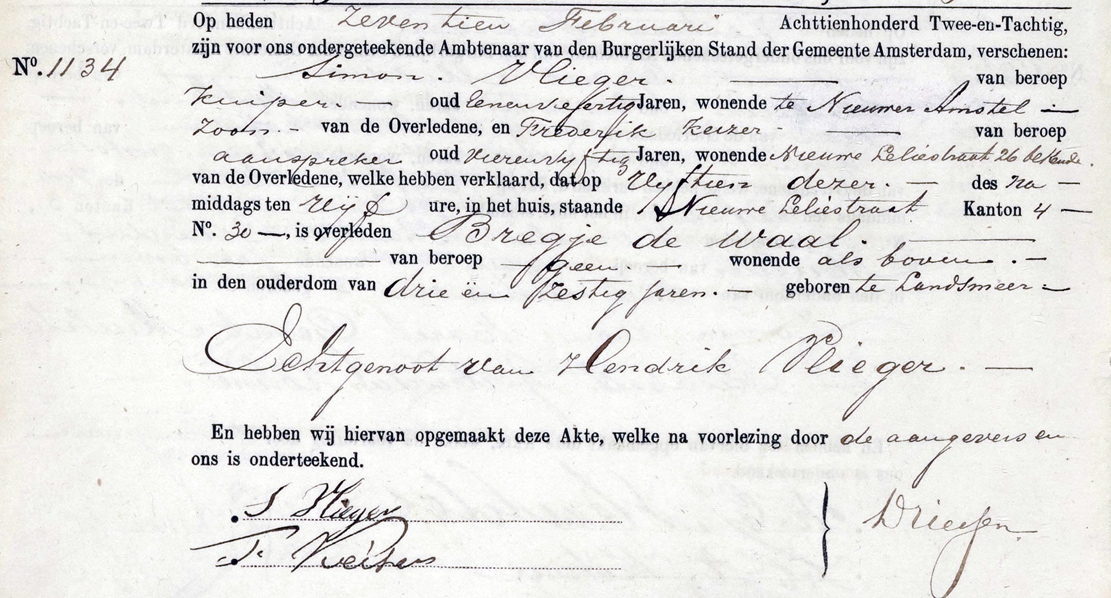 Op heden Zeventien Februari Achttienhonderd Twee-en-Tachtig,
zijn voor ons ondergeteekende Ambtenaar van den Burgerlijken Stand der Gemeente Amsterdam, verschenen:
No. 1134
Simon Vlieger. van beroep
Kuiper oud eenenveertig Jaren, wonende te Nieuwer Amstel
Zoon van de Overledene, en Frederik Keizer van beroep
aanspreker oud vierenvijftig Jaren, wonende Nieuwe Leliestraat 26 bekende
van de Overledene, welke hebben verklaard, dat op Vijftien dezer des na
middags ten vijf ure, in het huis, staande Nieuwe Leliestraat Kanton 4
No. 30, is overleden Bregje de Waal.
van beroep geen wonende als boven.
in den ouderdom van drie en Zestig Jaren. geboren te Landsmeer
Echtgenoot van Hendrik Vlieger.
En hebben wij hiervan opgemaakt deze Akte, welke na voorlezing door de aangevers en
ons is onderteekend.
S Vlieger
F. Keizer